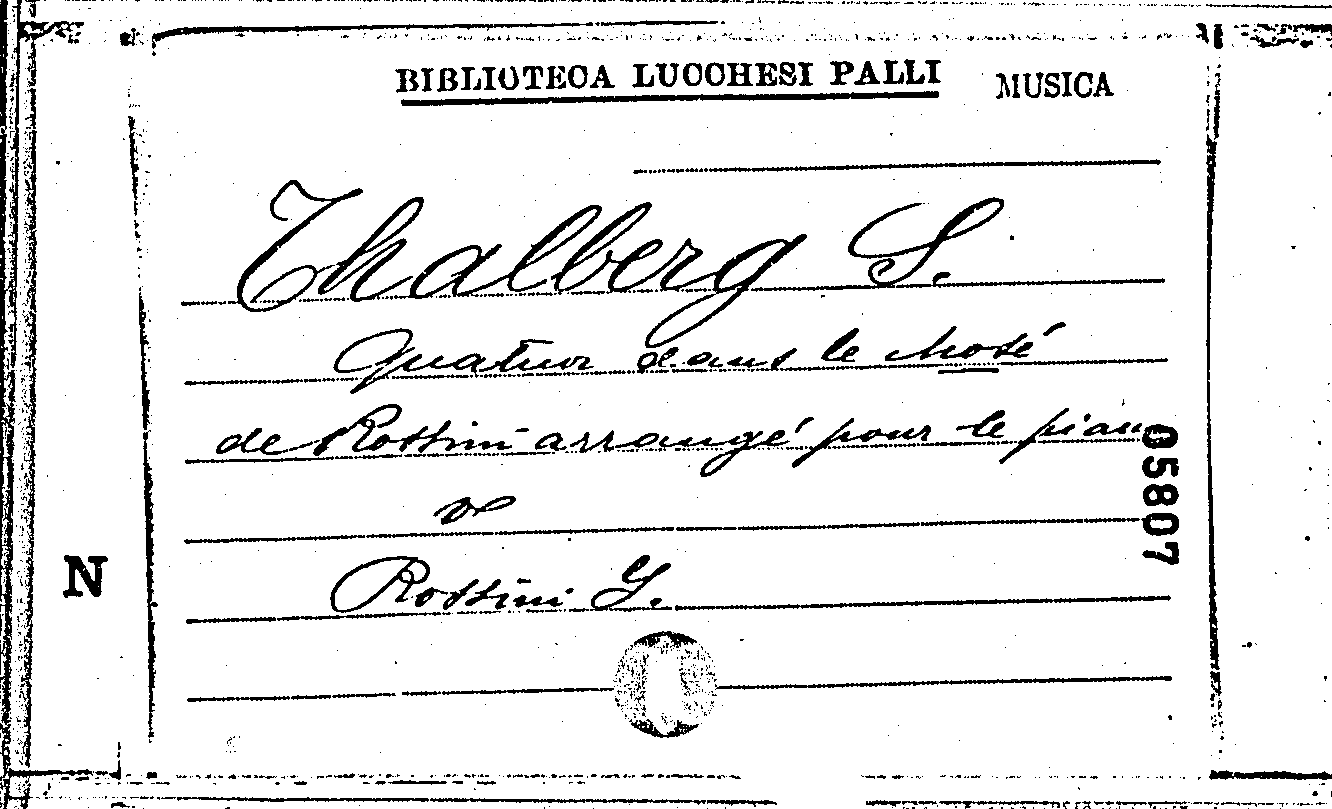 BIBLIOTECA LUCCHESI PALLI MUSICA
Thalberg S.
Quatuor dans le Mosé
de Rossini arrangé pour le piano
v
Rossini G.
05807
N